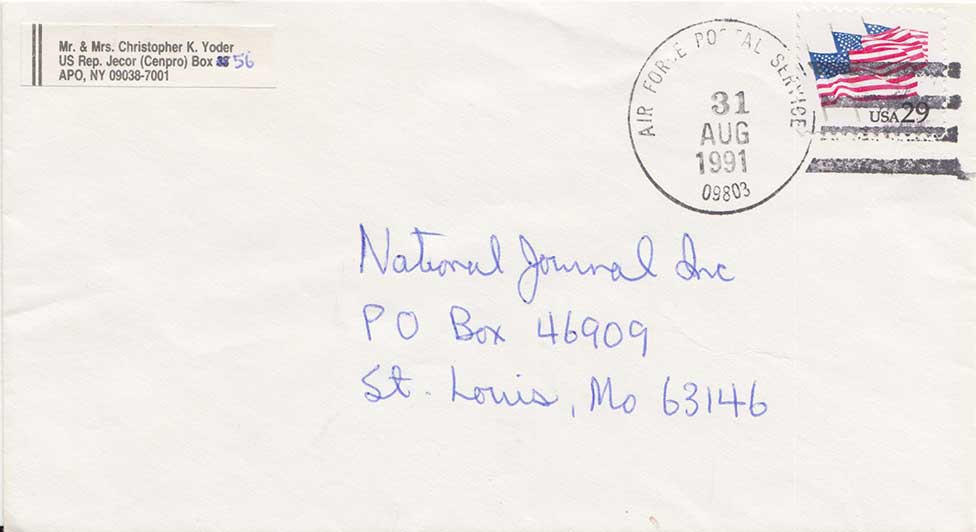 Mr. & Mrs. Christopher K. Yoder
US Rep. Jecor (Cenpro) Box 56
APO, NY 09038-7001
AIR FORCE POSTAL SERVICE
31
AUG
1991
09803
USA 29
National Journal Inc
PO Box 46909
St. Louis, Mo 63146